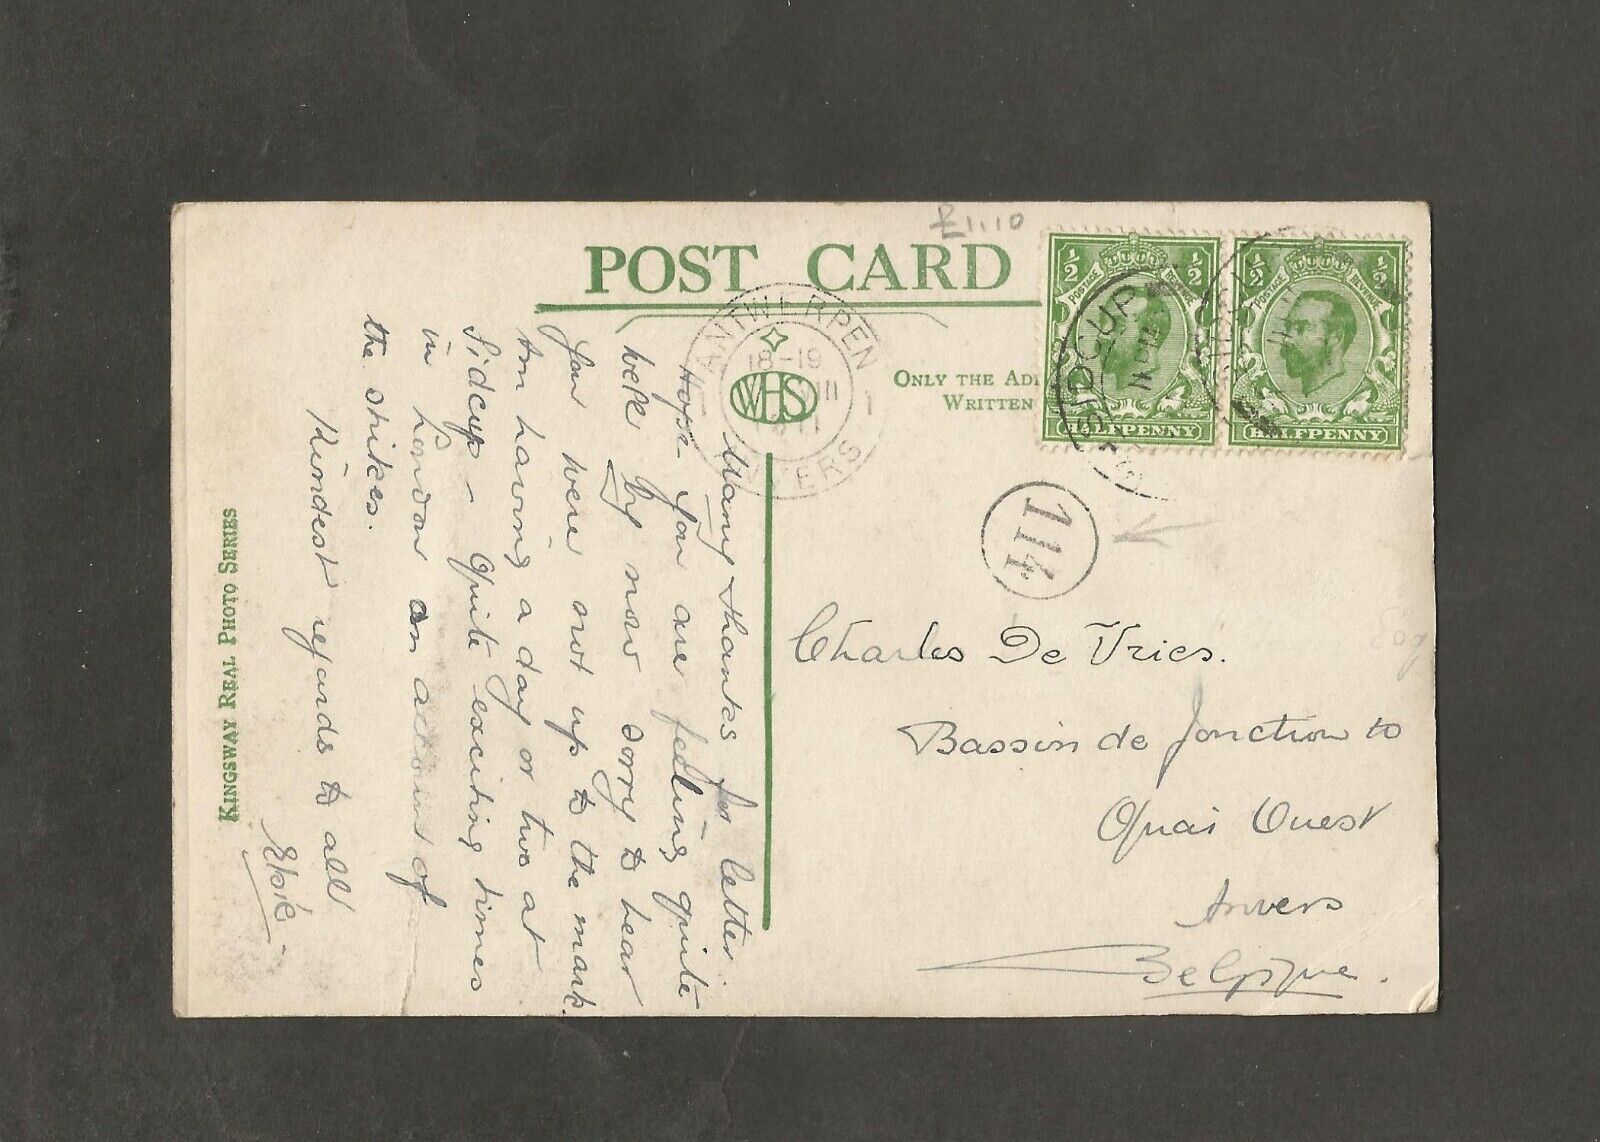 £1.10
POST CARD
ONLY THE AD
WRITTEN
½ ½
POSTAGE REVENUE
HALFPENNY
½ ½
POSTAGE REVENUE
HALFPENNY
SIDCUP
11
ANTWERPEN
18-19
VIII
1 1
ANVERS
WHS
114
Many thanks for letter
Hope you are feeling quite
well by now sorry to hear
you were not up to the mark.
Am having a day or two at
Sidcup - Quite exciting times
in London on account of
the strikes.
Kindest regards to all
Elsie -
Charles De Vries.
Bassin de Jonction 10
Quai Ouest
Anvers
Belgique.
KINGSWAY REAL PHOTO SERIES